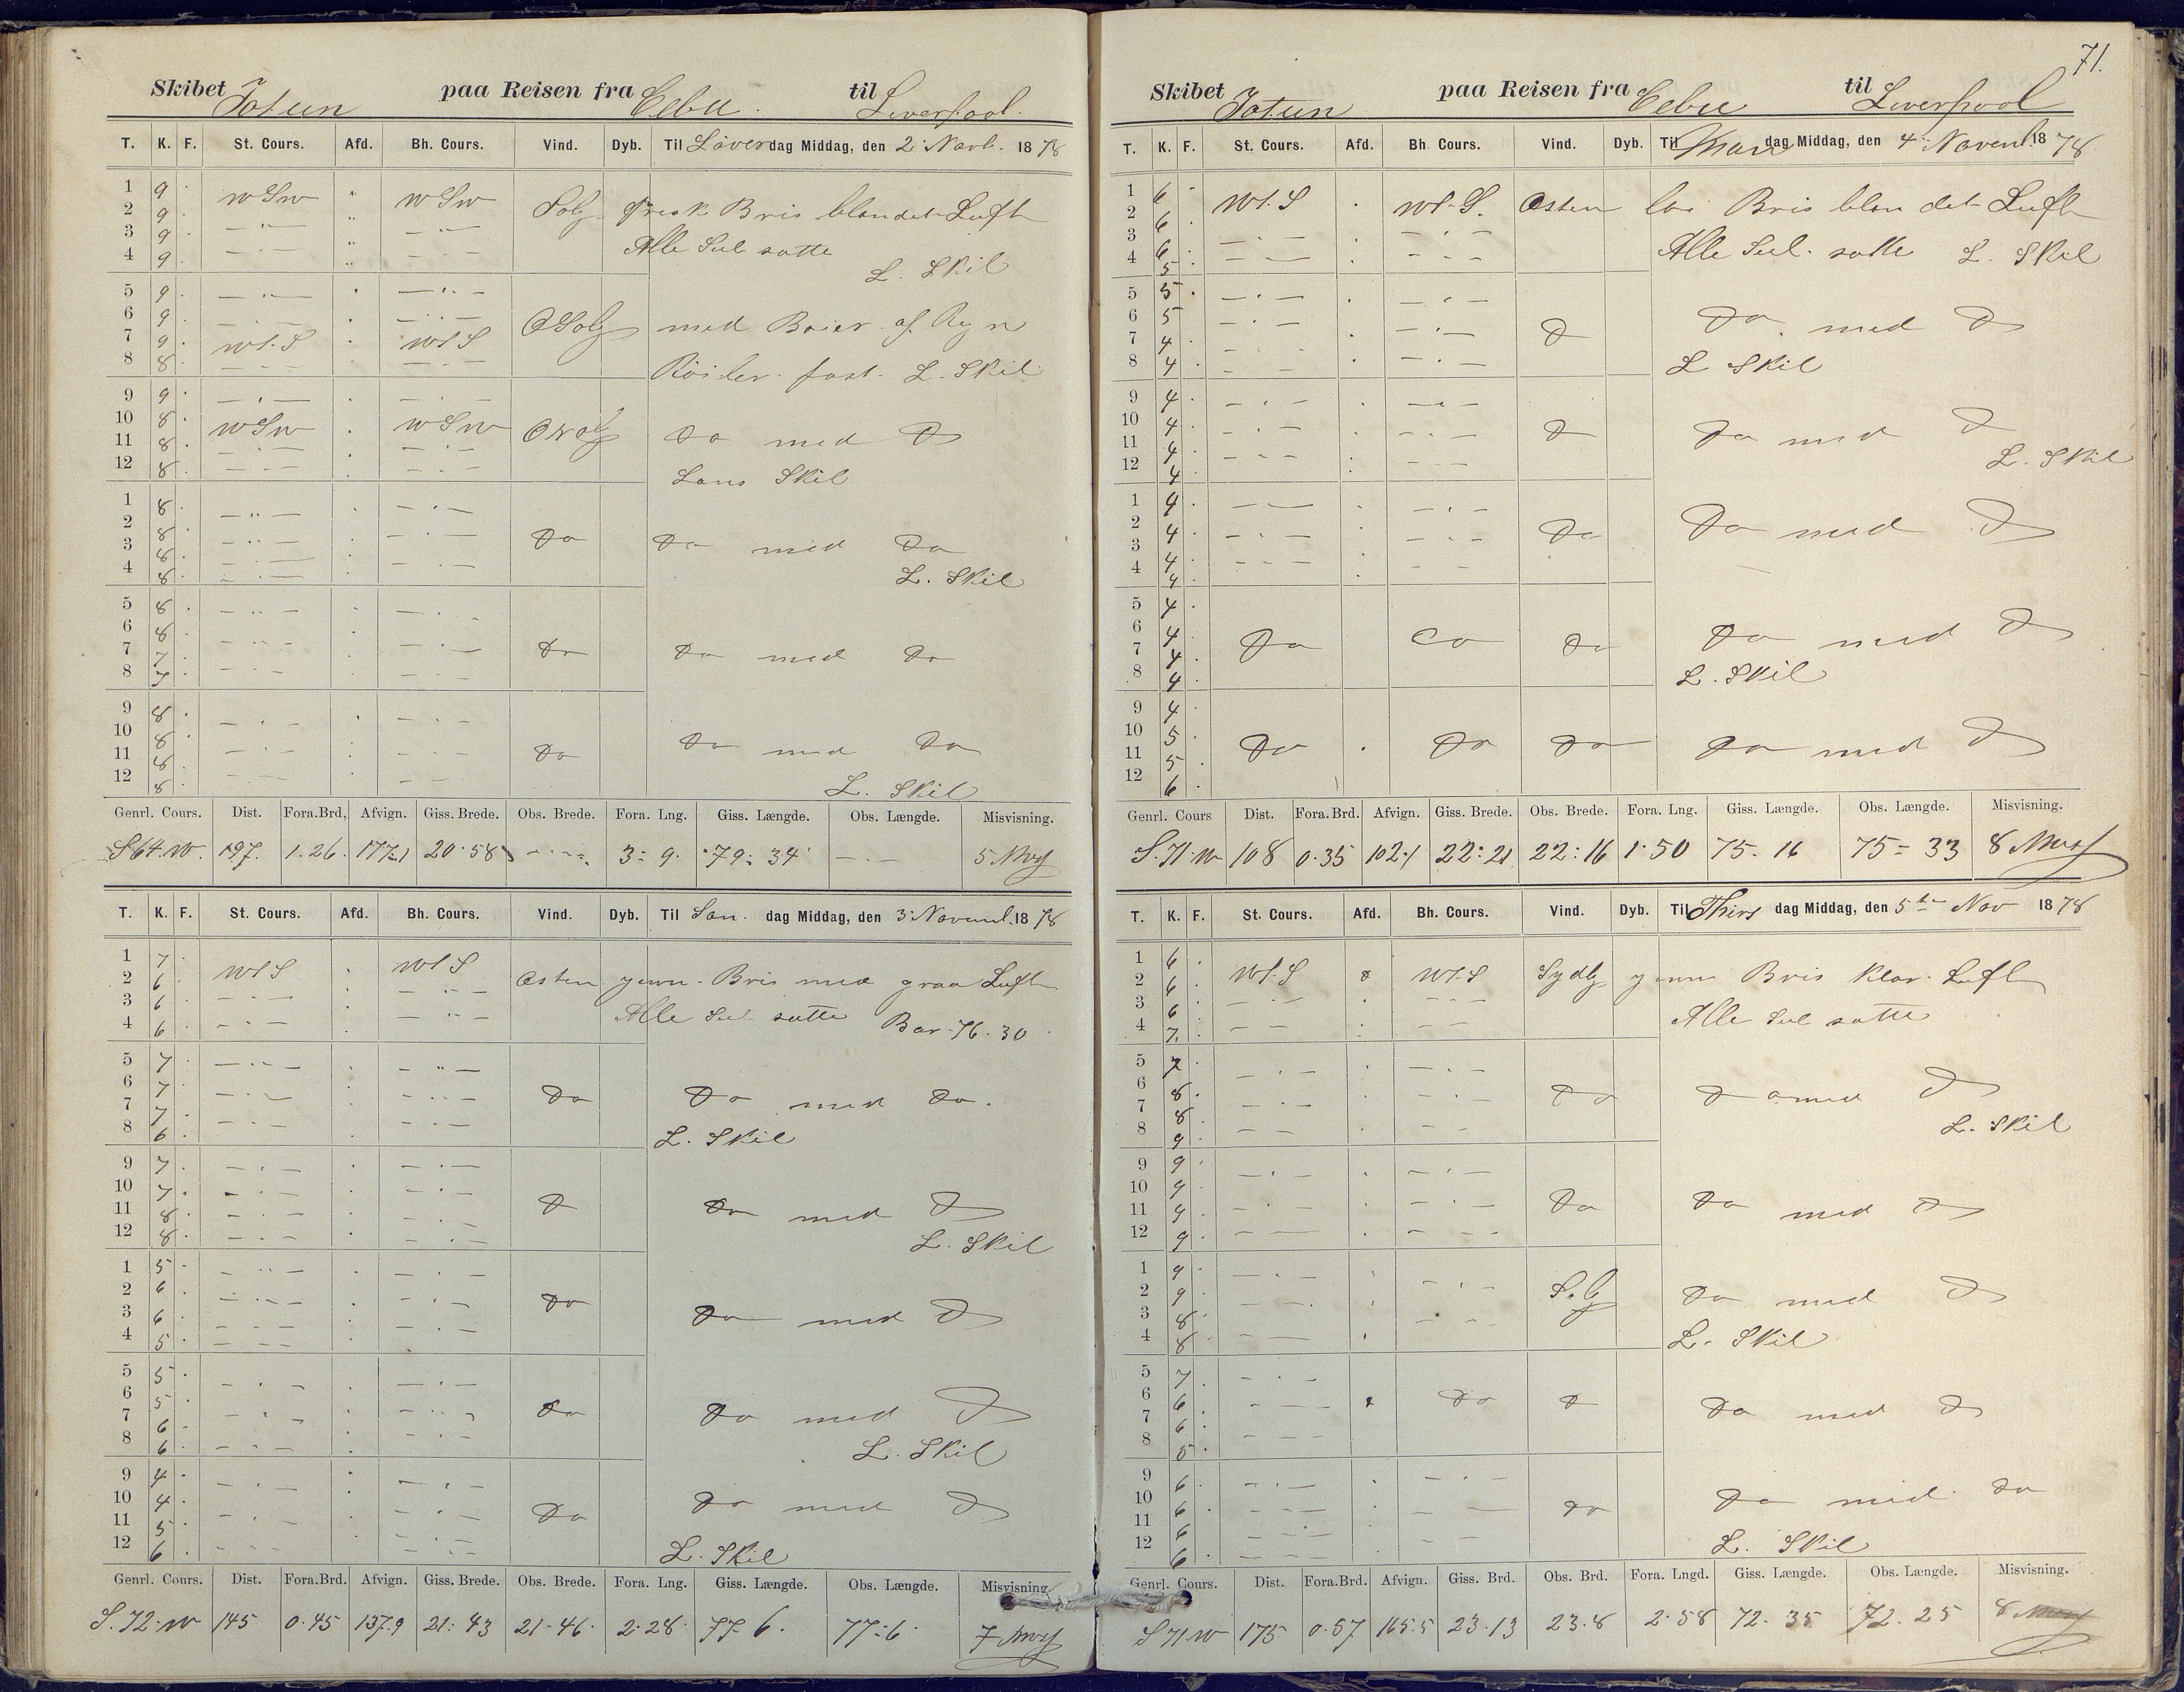 Skibet Jotun paa Reisen fra Cebu. til Liverpool.
T. K. F. St. Cours. Afd. Bh. Cours. Vind. Dyb. Til Löverdag Middag, den 2 Novb. 1878
1 9 WSW " WSW frisk Bris blandet Luft
2 9
3 9 Alle Seil satte
4 9 L. Skil
5 9
6 9 med Baier af Regn
7 9 WtS WtS
8 8 Röiler fast. L. Skil
9 9
10 8 WSW WSW Do med D
11 8
12 8 Lans Skil
1 8
2 8 Do Do med Do
3 8
4 8 L. Skil
5 8
6 8
7 7 Do Do med Do
8 7
9 8
10 8 Do Do med Do
11 8
12 8 L. Skil
Genrl. Cours. Dist. Fora.Brd, Afvign. Giss. Brede. Obs. Brede. Fora. Lng. Giss. Længde. Obs. Længde. Misvisning.
S 64 W. 197. 1.26. 177.1 20.58 3: 9. 79: 34 5
T. K. F. St. Cours. Afd. Bh. Cours. Vind. Dyb. Til Søn. dag Middag, den 3 Novemb. 1878
1 7 WtS WtS Osten jevn Bris med graa Luft
2 6
3 6 Alle Seil satte Bar. 76.30
4 6
5 7
6 7 Do Do med Do.
7 7
8 6 L. Skil
9 7
10 7 D Do med D
11 8
12 8 L. Skil
1 5
2 6 Do Do med D
3 6
4 5
5 5
6 5 Do Do med D
7 6
8 6 L. Skil
9 4
10 4 Do Do med D
11 5
12 6 L. Skil
Genrl. Cours. Dist. Fora.Brd. Afvign. Giss. Brede. Obs. Brede. Fora. Lng. Giss. Længde. Obs. Længde. Misvisning.
S. 72. W 145 0.45 137.9 21: 43 21.46. 2.28. 77. 6. 77:6. 7
71.
Skibet Jotun paa Reisen fra Cebu til Liverpool
T. K. F. St. Cours. Afd. Bh. Cours. Vind. Dyb. Til Man dag Middag, den 4. Novemb. 1878
1 6 Wt.S Wt.S. Osten lai Bris blandet Luft
2 6
3 6 Alle Seil. satte L. Skil
4 5
5 5
6 5 D Do. med D
7 4
8 4 L Skil
9 4
10 4 D Do med D
11 4
12 4 L. Skil
1 4
2 4 Do Do med D
3 4
4 4
5 4
6 4 Do Do Do Do med D
7 4
8 4 L. Skil
9 4
10 5 Do Do Do Do med D
11 5
12 6
Genrl. Cours Dist. Fora.Brd. Afvign. Giss. Brede. Obs. Brede. Fora. Lng. Giss. Længde. Obs. Længde. Misvisning.
S. 71. W 108 0.35 102.1 22: 21 22: 16 1.50 75. 16 75= 33 8
T. K. F. St. Cours. Afd. Bh. Cours. Vind. Dyb. Til Thirs dag Middag, den 5te Nov 1878
1 6 Wt.S Wt.S Sydlg jevn Bris Klar Luft
2 6
3 6 Alle Seil satte
4 7
5 7
6 8 Do Do med D
7 8
8 9 L. Skil
9 9
10 9 Do Do med D
11 9
12 9
1 9
2 9 Do med D
3 8
4 8 L. Skil
5 7
6 6 Do D Do med D
7 6
8 5
9 6
10 6 Do Do med Do
11 6
12 6 L. Skil
Genrl. Cours. Dist. Fora.Brd. Afvign. Giss. Brd. Obs. Brd. Fora. Lngd. Giss. Længde. Obs. Længde. Misvisning.
S 71 W 175 0.57 165.5 23.13 23.8 2.58 72. 35 72. 25 8